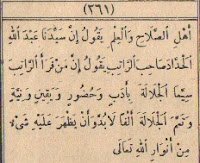 (٣٦١)
أَهْلِ الصَّلَاحِ وَالْعِلْمِ يَقُولُ إِنَّ سَيِّدَنَا عَبْدَ اللهِ
الْحَدَّادَ صَاحِبَ الرَّاتِبِ يَقُولُ إِنَّ مَنْ قَرَأَ الرَّاتِبَ
سِيَّمَا الْجَلَالَةَ بِأَدَبٍ وَحُضُورٍ وَيَقِينٍ وَنِيَّةٍ
وَتَمَّمَ الْجَلَالَةَ أَلْفًا لَا بُدَّ وَأَنْ يَظْهَرَ عَلَيْهِ شَيْءٌ
مِنْ أَنْوَارِ اللهِ تَعَالَى